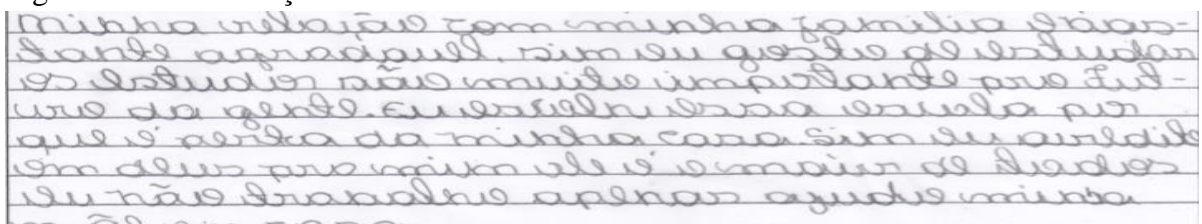 minha relação com minha familia é bas-
tante agradavel. sim eu gosto de estudar
os estudos são muito importante pro fut-
uro da gente. Eu escolhi essa escola por
que é perto da minha casa. Sim eu acredito
em deus pro mim ele é o maior de todos
eu não trabalho apenas ajudo minha